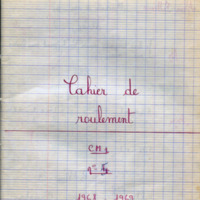 Cahier de
roulement
CM1
1968 1969